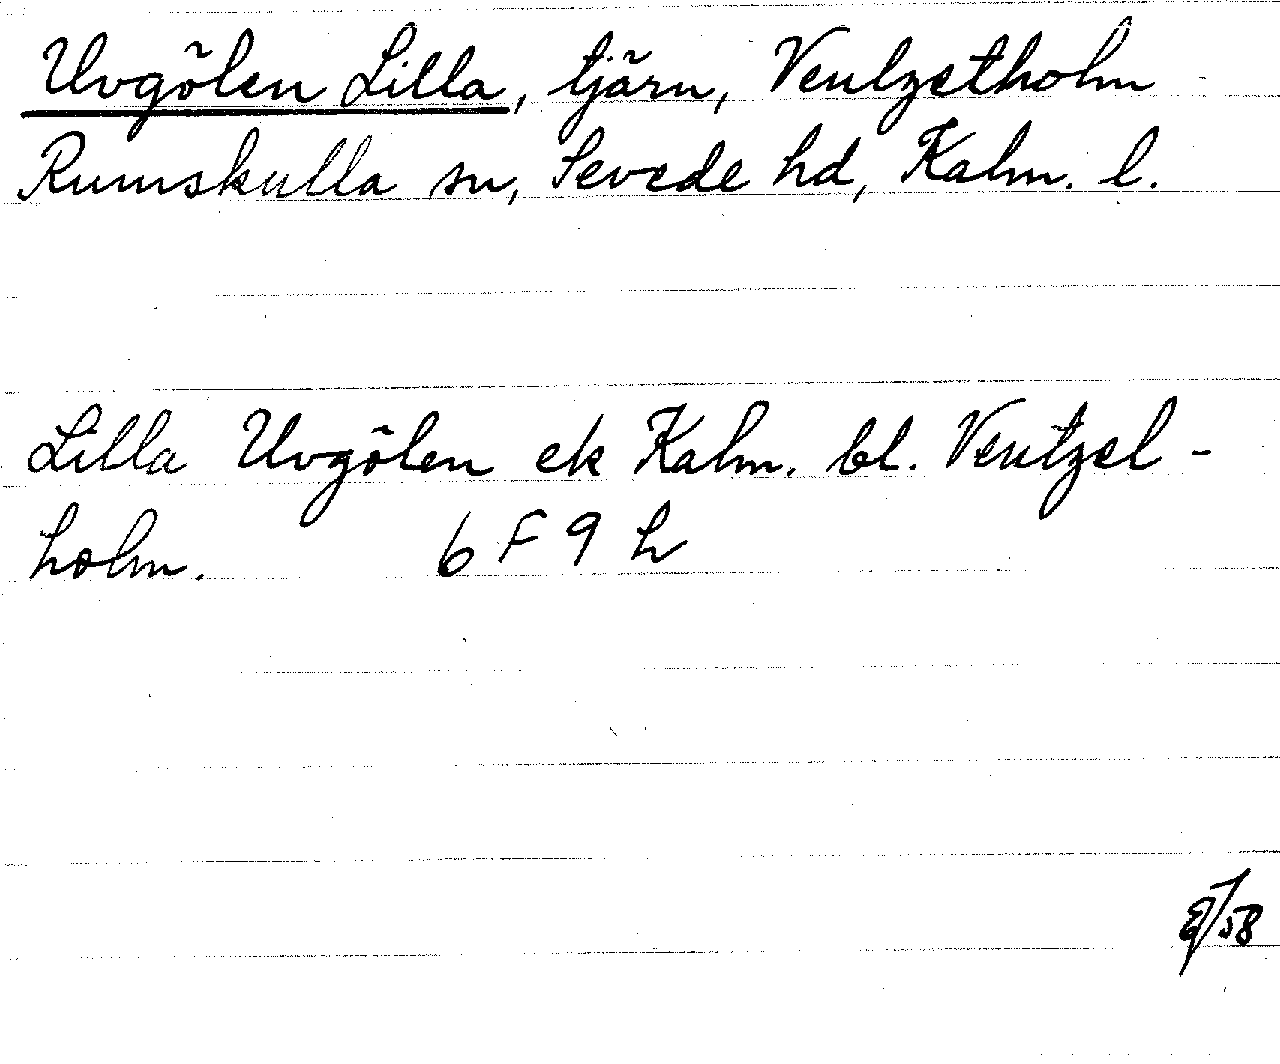 Uvgölen Lilla, tjärn, Venlzetholm
Rumskulla sn, Sevede hd, Kalm. l.
Lilla Uvgölen ek Kalm. bl. Ventzel-
holm. 6 F 9 h
/58